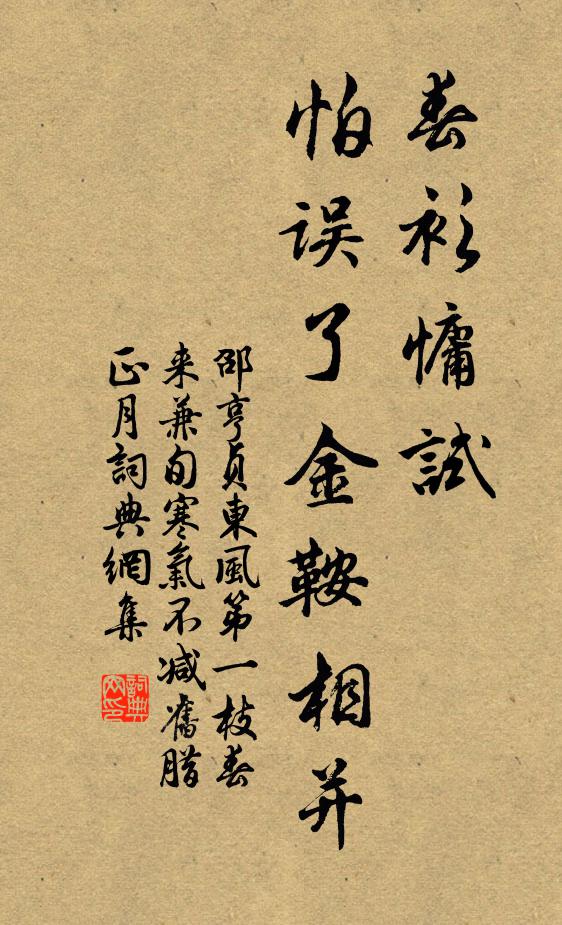 春衫慵試
怕误了金鞍相并
邵亨貞東風第一枝春
来兼旬寒氣不减舊腊
正月詞典網集
詞典
文印